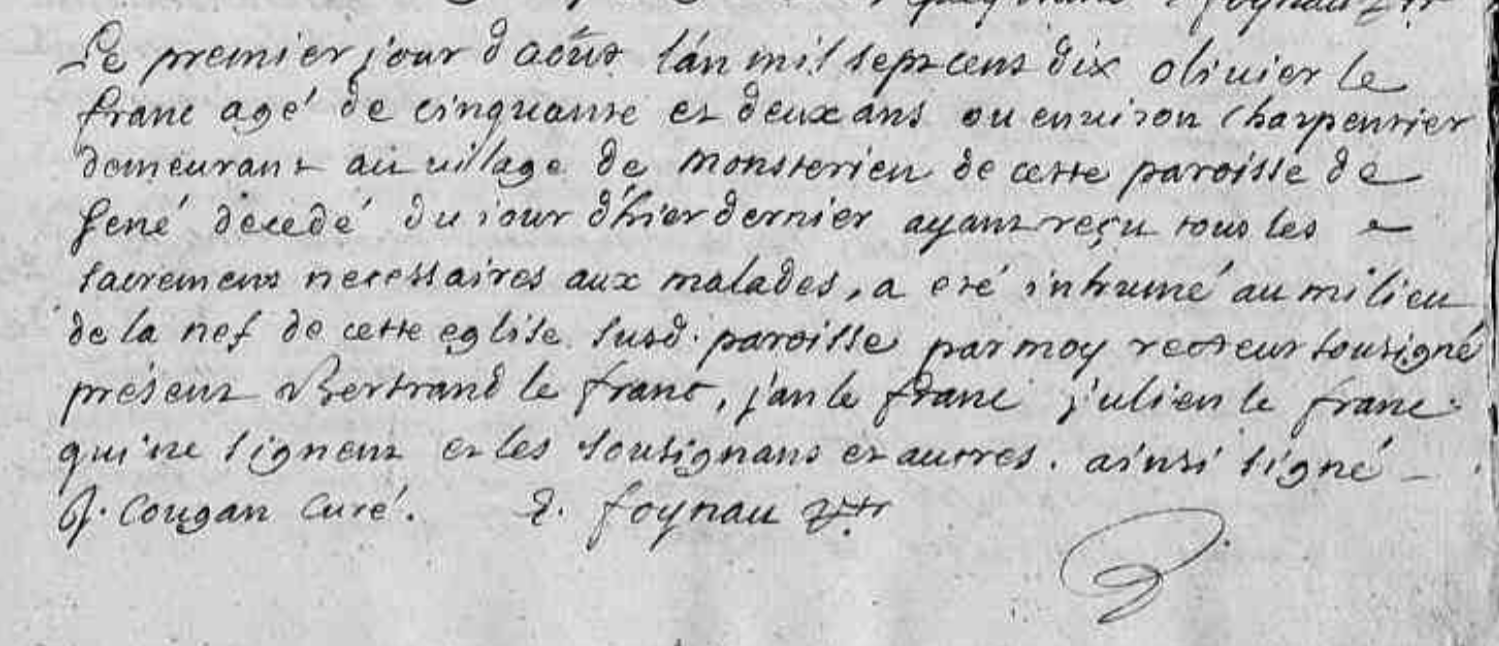 foynau
Le premier jour d'aoust l'an mil sept cent dix olivier le
franc agé de cinquante et deux ans ou environ charpentier
demeurant au village de monsterien de cette paroisse de
sené decedé du jour d'hier dernier ayant reçu tous les
sacremens necessaires aux malades, a eté inhumé au milieu
de la nef de cette eglise susd. paroisse par moy recteur sousigné
présent Bertrand le franc, jan le franc julien le franc
qui ne signent et les sousignans et autres. ainsi signé
J. Cougan Curé. foynau